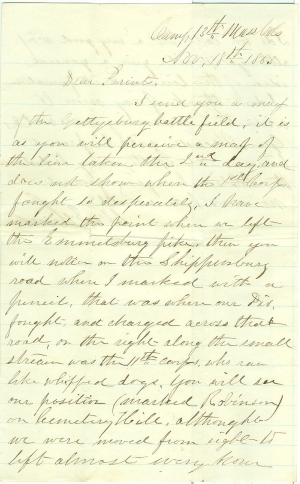 Camp, 13th Mass Vols
Nov, 18th 1863
Dear Parint,
I send you a map
of the Gettysburg battle field, it is
as you will perceive a map of
the line taken, the 2nd day, and
does not show where the 1st Corps
fought so desperately, I have
marked the point where we left
the Emmetsburg pike, then you
will notice on the Shippensburg
road where I marked with a
pencil, that was where our Div.
fought, and charged across that
road, on the right along the small
stream was the 11th corps, who ran
like whipped dogs, You will see
our position (marked Robinson)
on Cemetery Hill, although
we were moved from right to
left almost every hour